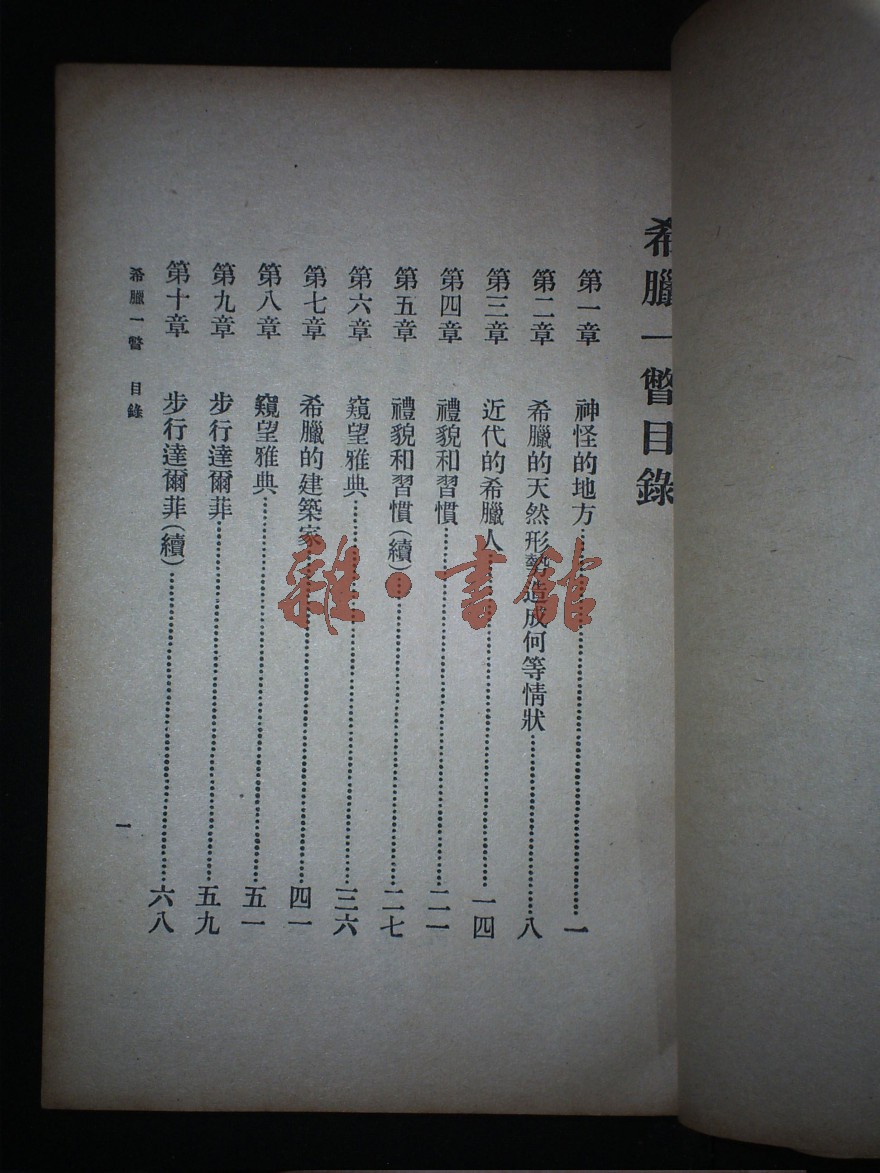 希臘一瞥目錄
第一章 神怪的地方……一
第二章 希臘的天然形勢造成何等情狀……八
第三章 近代的希臘人……一四
第四章 禮貌和習慣……二一
第五章 禮貌和習慣(續)……二七
第六章 窺望雅典……三六
第七章 希臘的建築家……四一
第八章 窺望雅典……五一
第九章 步行達爾菲……五九
第十章 步行達爾菲(續)……六八
希臘一瞥 目錄
一
雜·書館